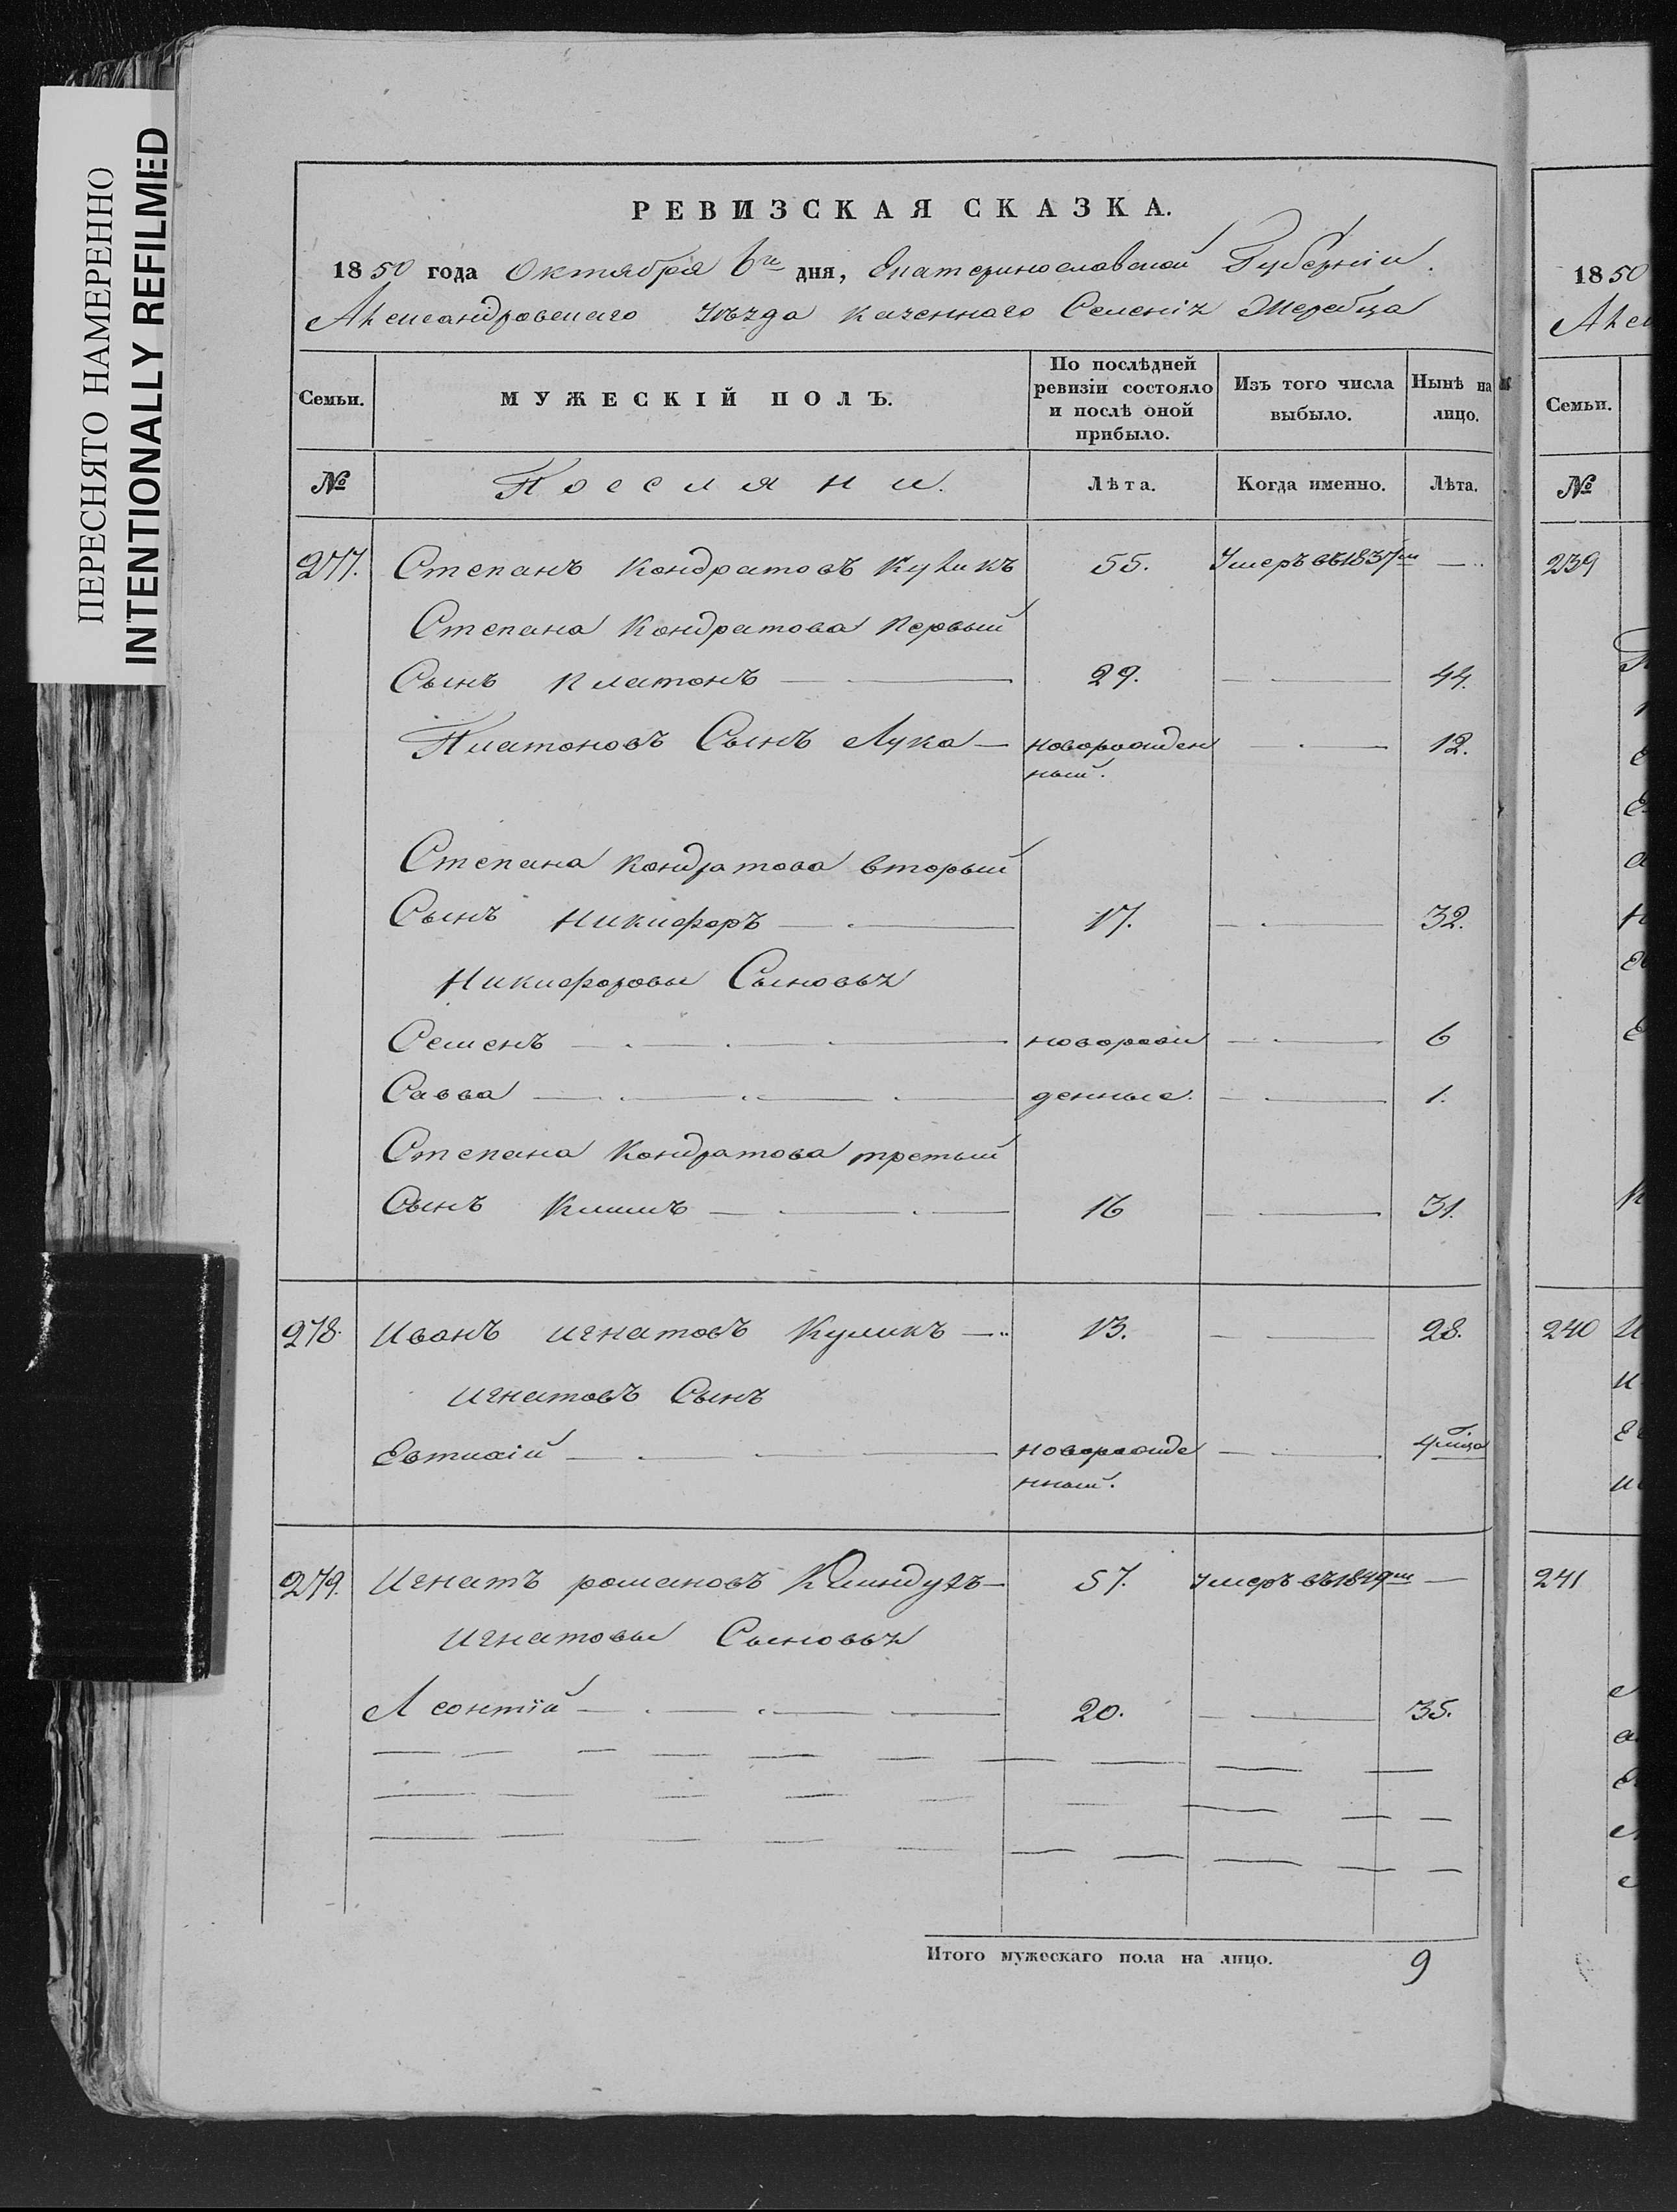 ПЕРЕСНЯТО НАМЕРЕННО
INTENTIONALLY REFILMED
РЕВИЗСКАЯ СКАЗКА.
1850 года Октября 6го дня, Екатеринославской Губерніи.
Александровскаго Уѣзда казеннаго Селенія Жеребца
Семьи. МУЖЕСКІЙ ПОЛЪ. По послѣдней ревизіи состояло и послѣ оной прибыло. Изъ того числа выбыло. Нынѣ на лицо.
№ Поселяни. Лѣта. Когда именно. Лѣта.
277. Степанъ Кондратовъ Куликъ 55. Умеръ въ 1837м —
Степана Кондратова Первый
Сынъ Платонъ — 29. — 44.
Платоновъ Сынъ Лука — новорожден — 12.
ный.
Степана Кондратова вторый
Сынъ Никифоръ — 17. — 32.
Никифоровы Сыновья
Семенъ — новорож — 6
Савва — денные. — 1.
Степана Кондратова третый
Сынъ Климъ — 16 — 31.
278. Иванъ Игнатовъ Куликъ — 13. — 28.
Игнатовъ Сынъ
Евтихій — новорожде —
нный.
279. Игнатъ романовъ — 57. Умеръ въ 1849м —
Игнатовы Сыновья
Леонтій — 20. — 35.
Итого мужескаго пола на лицо. 9
1850
Семьи.
№
239
240
241